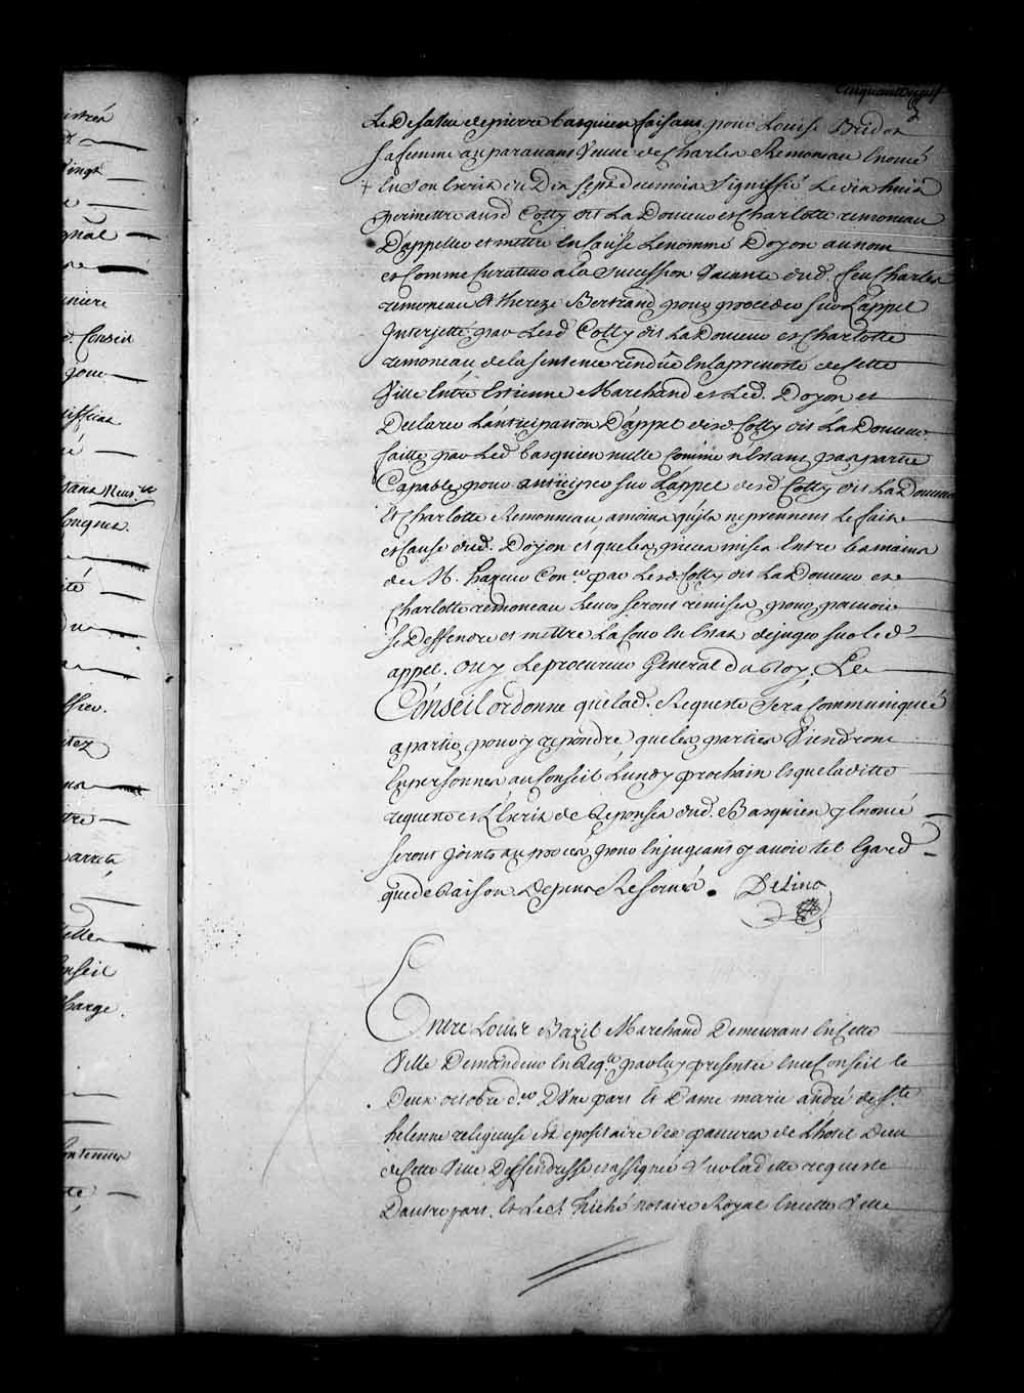 istrée
Vingt
gnal
niere
d. Conseil
gou
Cinquante
Le Desaveu de pierre basquien faisant pour Louise Bridon
sa femme auparavant Veuve de Charles Remoneau Enoncé
En son Ecrit du Dix sept du mois signiffié Le vin huit
permettre ausd Cotty dit La Douceur et Charlotte remoneau
D'appeller et mettre En Cause Le nommé Doyon au nom
et Comme Curateur a la succession Vacante dud. feu Charles
remoneau & thereze Bertrand pour proceder sur L'appel
Interjetté par Lesd Cotty dit La Douceur et Charlotte
remoneau de la sentence rendüe En la prevosté de Cette
Ville Entre Estienne Marchand et Led. Doyon et
Declarer L'anticipation D'appel desd. Cotty dit La Douceur
faitte par Led basquien nulle Comme n'Estant pas partie
Capable pour anticiper sur L'appel desd Cotty dit La Douceur
Et Charlotte Remonneau amoins qu'ils ne prennent Le fait
et Cause dud. Doyon et que les pieces mises Entre les mains
de M. hazeur Con.er par Lesd. Cotty dit La Douceur et
Charlotte remoneau Leurs seront remises pour pouvoir
se Deffendre et mettre La Cour En Estat de juger sur led
appel. Ouy Le procureur General du Roy. Le
Conseil ordonne que lad. Requeste sera Communiquée
a partie pour y repondre que les parties Viendront
En personnes au Conseil Lundy prochain Et que laditte
requeste et L'Ecrit de Reponses dud. Basquien y Enoncé
seront joints au procès pour En jugeant y avoir tel Egard
que de Raison Depens Reservés. Delino
Entre Louis Bazil Marchand Demeurant En Cette
Ville Demandeur En Req.te par luy presentée En ce Conseil le
Deux octobre d.er D'Une part Et Dame marie andré de S.te
helenne religieuse depositaire des pauvres de L'hotel Dieu
de Cette Ville Deffendresse et assignée Sur la ditte requeste
D'autre part. Et Le S. hiché notaire Royal En cette Ville